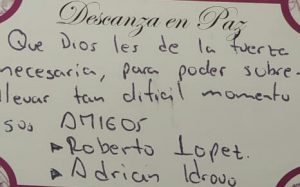 Descanza en Paz
Que Dios les de la fuerza
necesaria, para poder sobre-
llevar tan dificil momento
sus AMIGOS
Roberto Lopez.
Adrian Idrovo